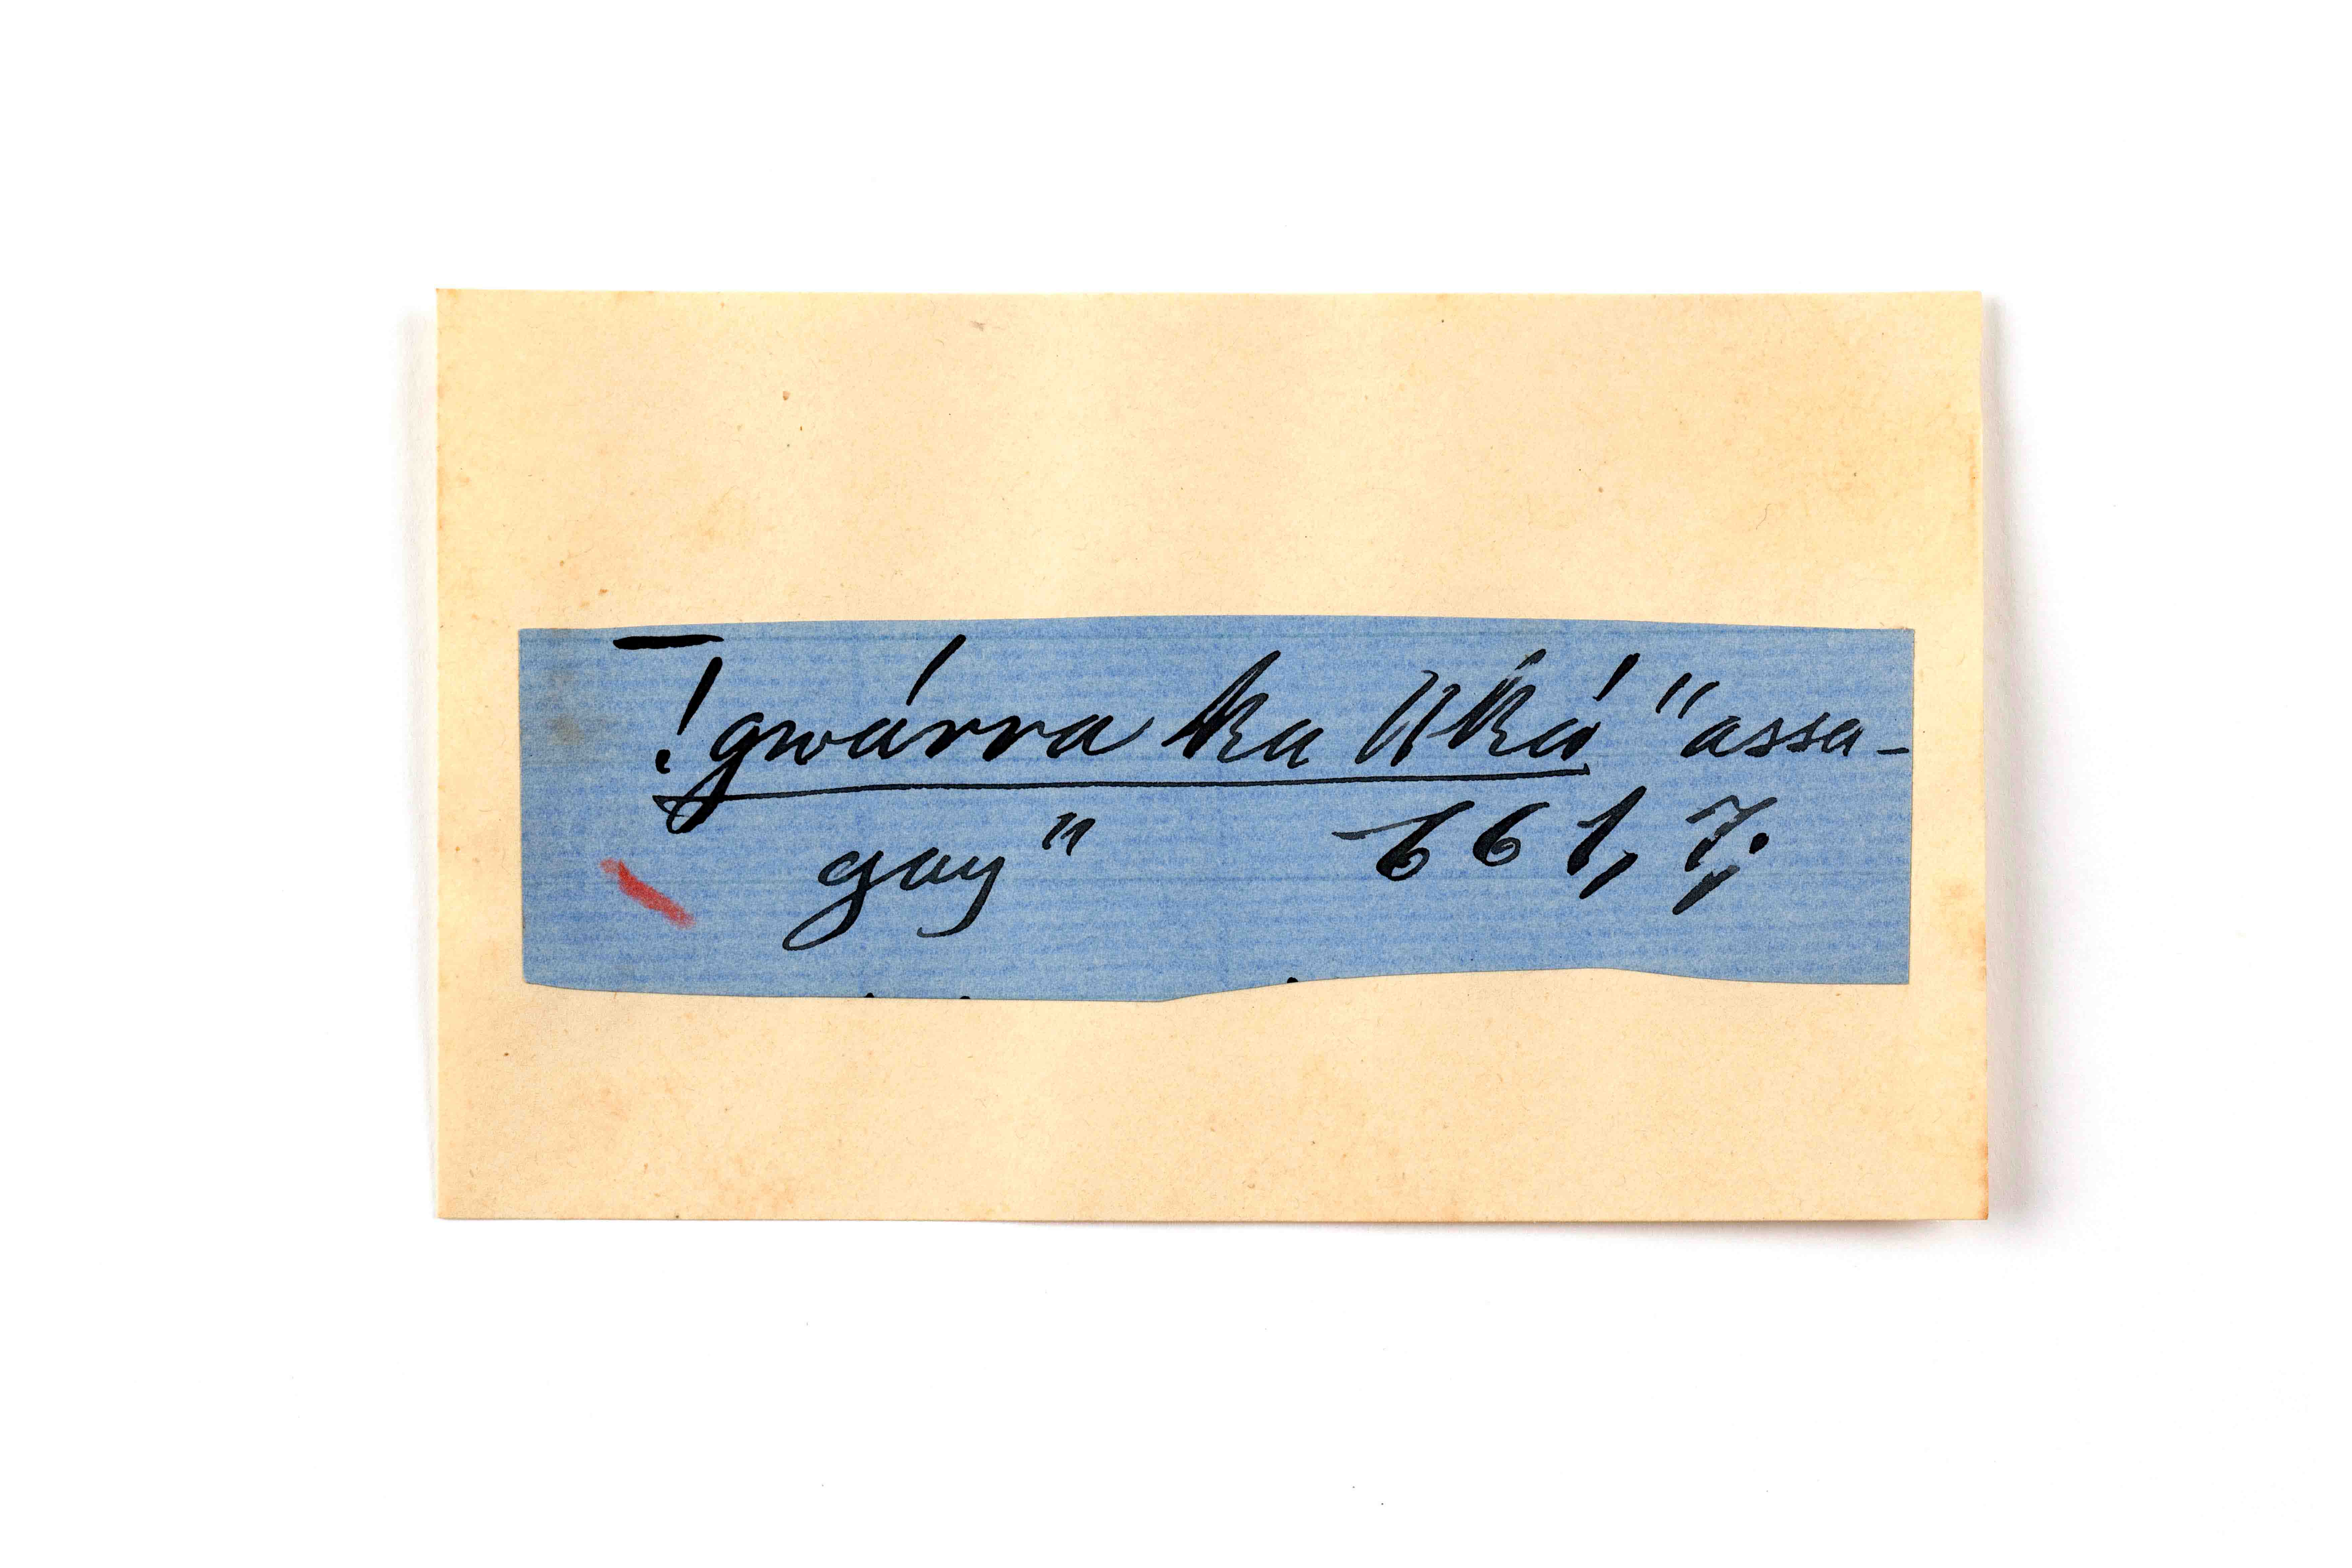 !gwárra ka ǁká "assa-
gay" 661, 7;